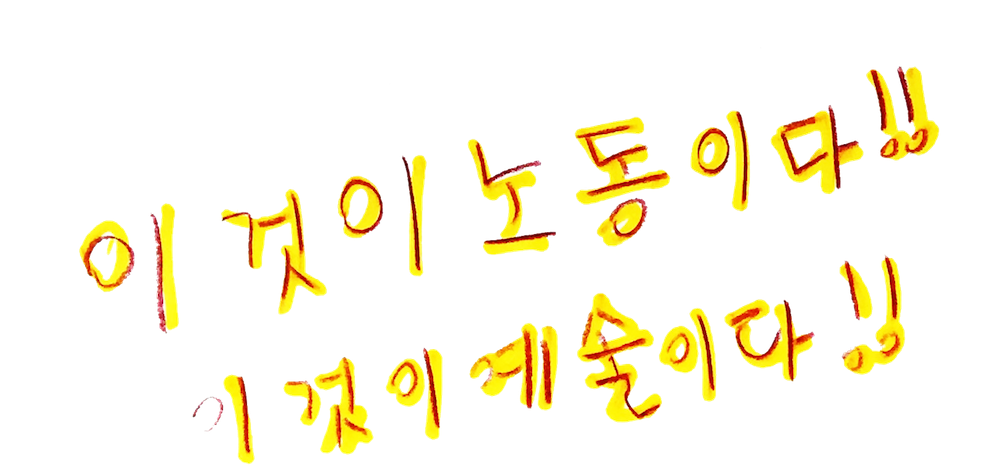 이것이 노동이다!!
이것이 예술이다!!